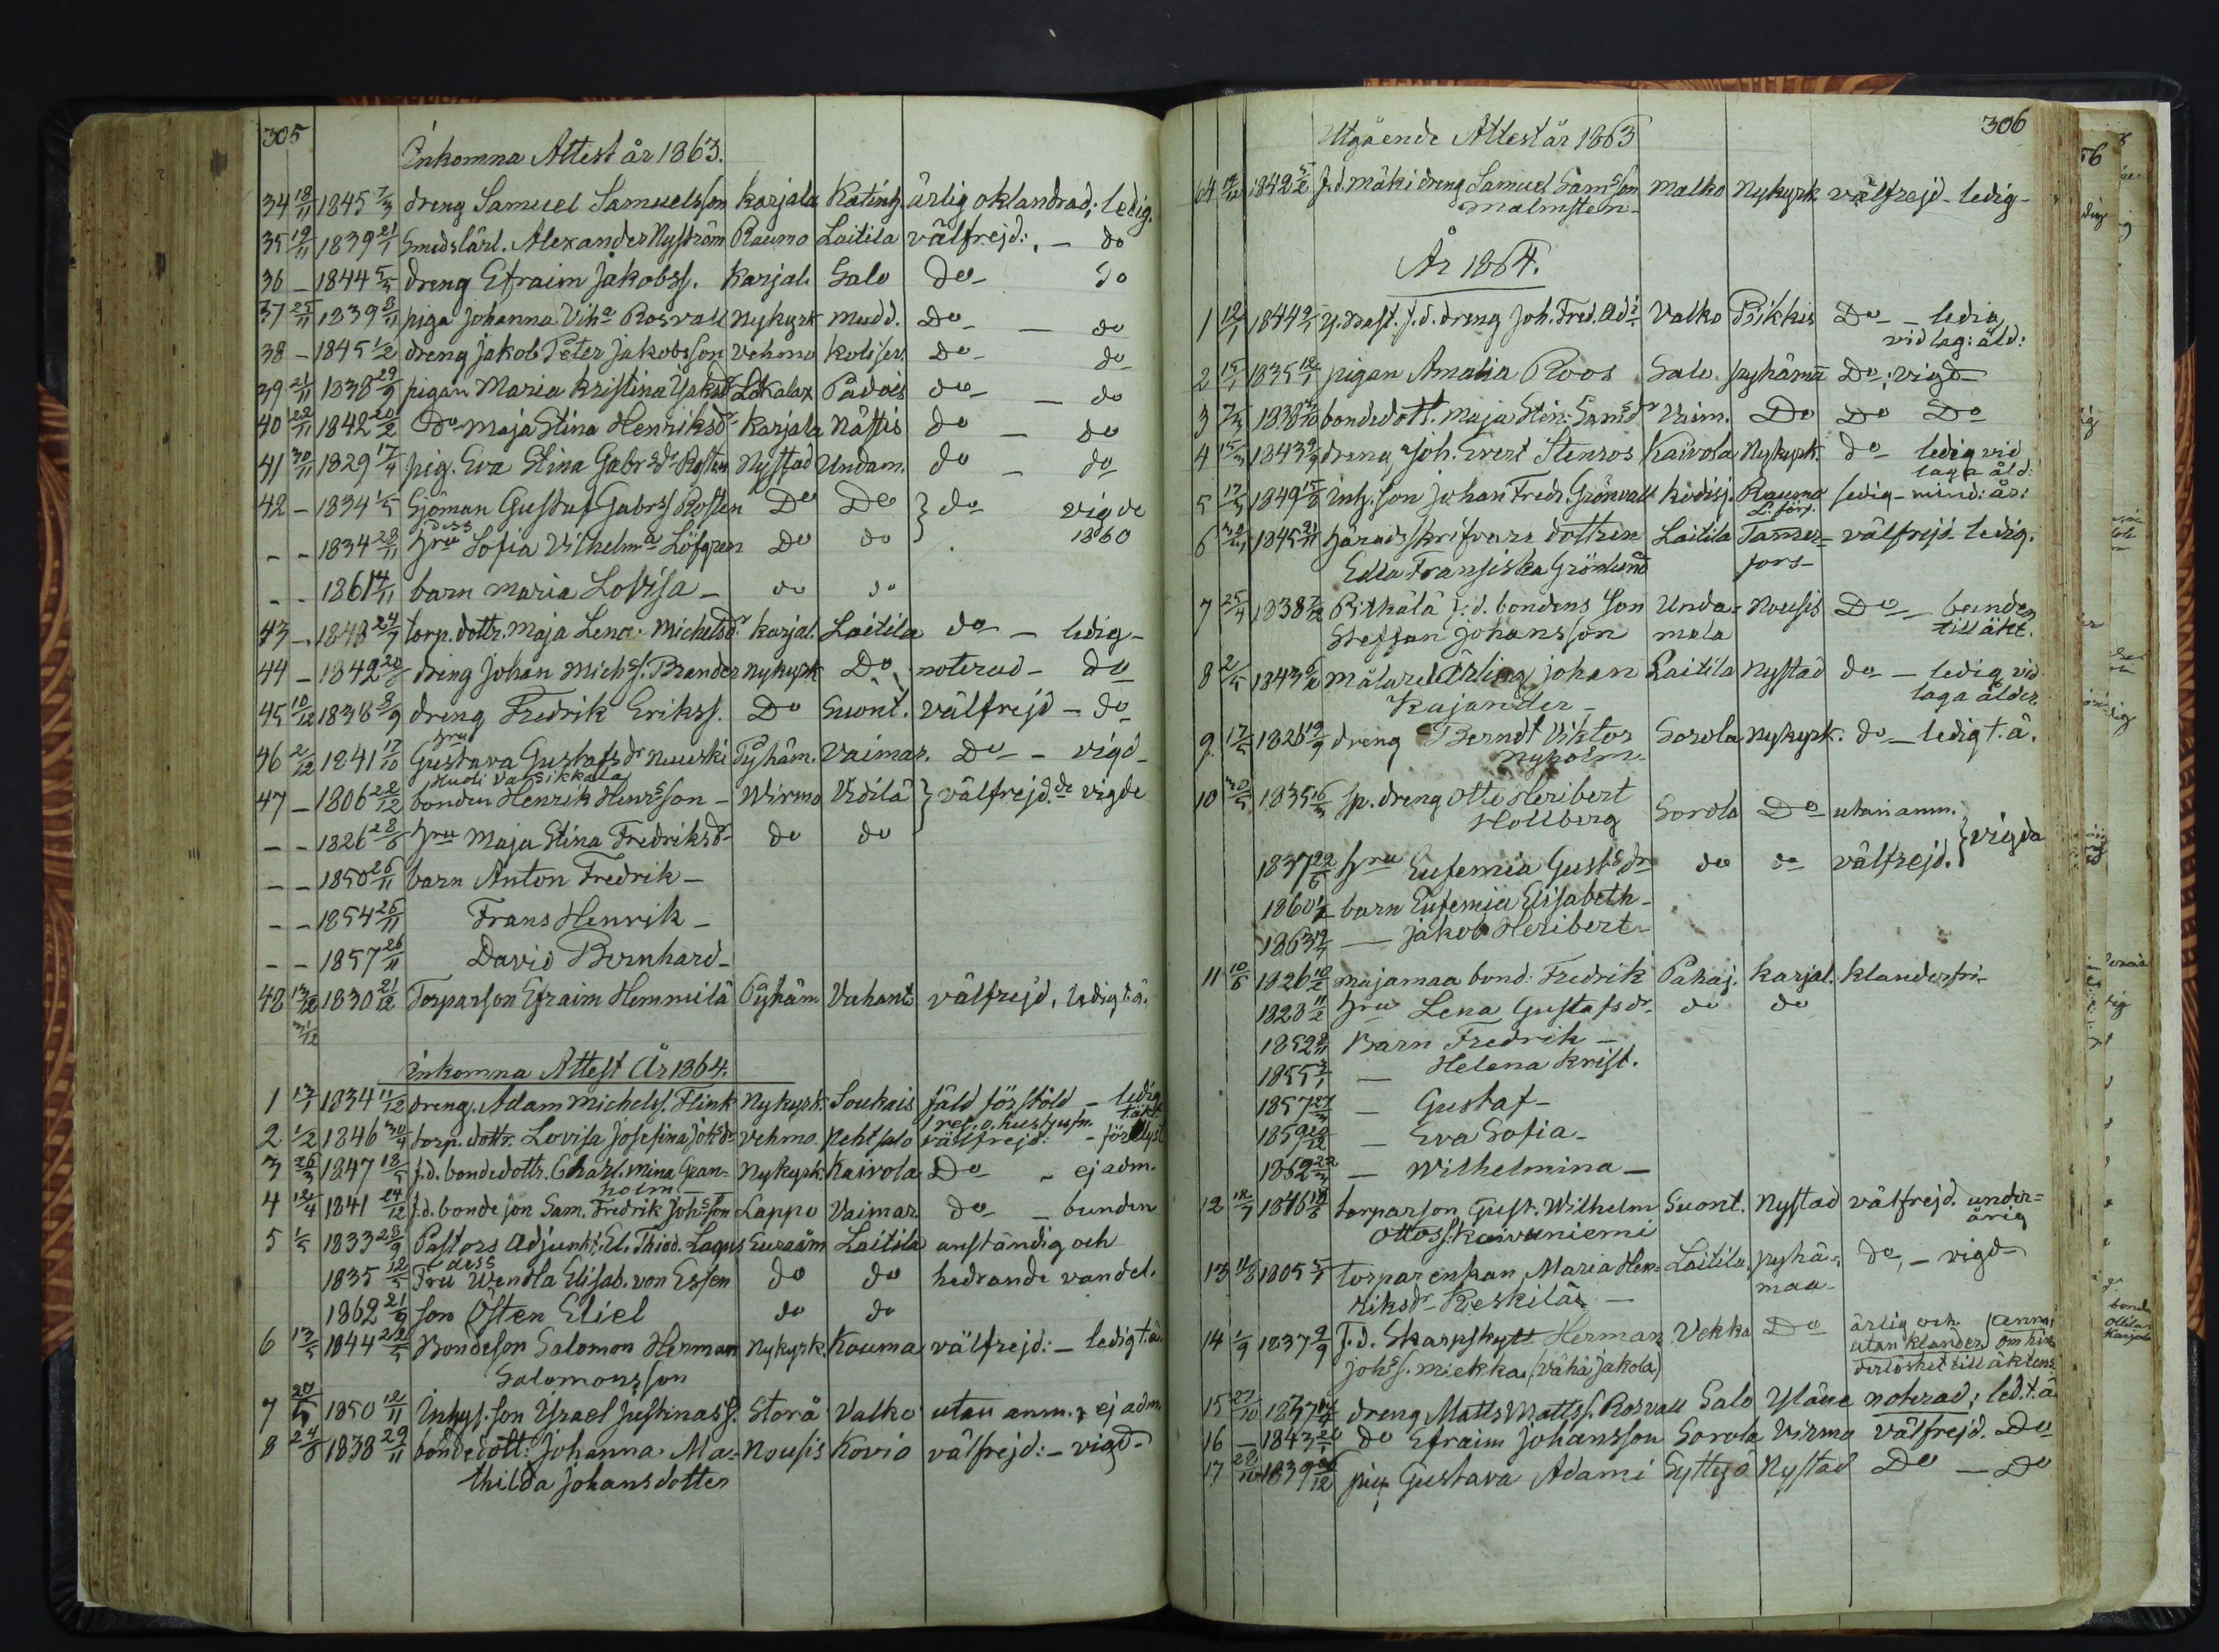 305
Inkomna Attest år 1863.
34 18/11 1845 7/3 dreng Samuel Samuelsson Karjala Katinh. ärlig oklandrad; ledig.
35 19/11 1839 21/1 Smedslärl. Alexander Nyström Raumo Laitila välfrejd: - do
36 - 1844 5/5 dreng Efraim Jakobss. Karjal. Salo Do - do
37 25/11 1839 8/11 piga Johanna Vilha Rosvall Nykyrk mudd. Do - do
38 - 1845 1/2 dreng Jakob Peter Jakobsson Vehmo Koliser. Do - do
39 21/11 1838 29/9 pigan Maria Kristina Isaksdr Lokalax Padois do - do
40 22/11 1842 20/2 Do Maja Stina Henriksdr Karjala Nästis do - do
41 30/11 1829 17/4 pig. Eva Stina Gabrsdr Rosten Nystad Undam. do - do
42 - 1834 1/5 Sjöman Gustaf Gabrss Rosten Do Do } do vigde
- - 1834 28/11 dess hru Sofia Vilhelma Löfgren Do do 1860
- - 1861 14/11 barn Maria Lovisa - do do
43 - 1848 24/7 torp. dottr. Maja Lena Michelsdr Karjal. Laitila do - ledig -
44 - 1842 20/6 dreng Johan Michss. Brander Nykyrk Do noterad - do
45 10/12 1838 8/9 dreng Fredrik Erikss. Do Suont. välfrejd - do
46 2/12 1841 17/10 hru Gustava Gustafsdr Nuuski Pyhäm. Vaimar. Do - vigd -
47 - 1806 22/12 Huoli Vassikkala bonden Henrik Henrsson - Wirmo Vidilä } välfrejd.de vigde
- - 1826 28/8 hru Maja Stina Fredriksdr do do
- - 1850 26/11 barn Anton Fredrik -
- - 1854 25/11 Frans Henrik -
- - 1857 26/11 David Bernhard -
48 13/12 1830 21/12 Torparson Efraim Hemmilä Pyhäm Vahant välfrejd, ledig t.ä.
31/12
Inkomna Attest År 1864.
1 13/1 1834 11/12 dreng. Adam Michelss. Flink Nykyrk. Soukais fäld för stöld - ledig t. äkt.
2 1/2 1846 30/4 torp. dottr. Lovisa Josefina Johsdr Vehmo. välfrejd: - förelyst
3 26/3 1847 18/5 f.d. bondedottr. Charl. Mina Gran- Nykyrk. Kaivola Do - ej adm.
holm -
4 12/4 1841 24/12 f.d. bondeson Sam. Fredrik Johsson Lappo Vaimar do - bunden
5 1/5 1833 28/9 Pastors Adjunkt. El. Theod. Lagus Euraåm. Laitila anständig och
1835 12/5 dess Fru Wendla Elisab. von Essen do do hedrande vandel.
1862 21/9 son Östen Eliel do do
6 13/5 1844 22/5 Bondeson Salomon Herman Nykyrk. Kouma välfrejd: - ledig t.ä.
Salomonsson
7 20/5 1850 12/11 Inhys. son Israel Justinass. Storå Valko utan anm. ej adm.
8 24/8 1838 29/11 bondedott: Johanna Ma- Nousis Kovio välfrejd: - vigd -
thilda Johansdotter
306
Utgående Attest år 1863
64 1842 5/2 f.d. Mäki dreng Samuel Samsson Malko Nykyrk. välfrejd - ledig -
Malmsten -
År 1864.
1 12/1 1844 f.d. dreng Joh. Fred. Valko Pikkis Do - ledig
vid lag: åld:
2 15/1 1835 12/1 pigan Amalia Roos Salo. Pyhäma Do; vigd -
3 1838 bondedott. Maja Stin. Samsdr Vaim. Do Do Do
4 15/3 1843 dreng Joh. Evert Stenros Kaivola Nykyrk. do - ledig vid
laga åld:
5 17/3 1849 15/8 inh. son Johan Fredr. Grönvall Kodisj. Raumo ledig - mind: år:
L: förs.
6 1845 21/11 häradsskrifvare dottren Laitila Tamer- välfrejd - ledig.
Edla Fransiska Grönlund fors -
7 25/4 1838 7/12 Pitkälä f.d. bondens son Unda- Nousis Do - bunden
Steffan Johansson mala till äkt.
8 2/5 1843 målarelärling Johan Laitila Nystad do - ledig vid
Kajander - laga ålder
9 17/5 1826 19/9 dreng Berndt Viktor Sorola Nykyrk. do - ledig t. ä.
Nyholm -
10 30/5 1835 16/3 sp. dreng Otto Heribert
Hollberg Sorola Do utan anm. } vigda
1837 22/6 hru Eufemia Gustsdr do do välfrejd.
1860 barn Eufemia Elisabeth -
1863 - Jakob Heribert -
11 10/6 1826 10/2 Majamaa bond. Fredrik Pahaj. Karjal. klanderfri -
1828 11/2 hru Lena Gustafsdr. do do
1852 Barn Fredrik -
1855 - Helena Krist.
1857 27/3 - Gustaf -
1859 20/12 - Eva Sofia -
1862 22/3 - Wilhelmina -
12 18/7 1846 torparson Gust. Wilhelm Suont. Nystad välfrejd. under=
Ottoss. Kaivuniemi årig
13 1805 torparenkan Maria Hen- Laitila Pyhä- do, - vigd -
riksdr Keskilä - maa -
14 1/9 1837 9/9 f.d. Skarpskytt Herman Vekka Do ärlig och (anm:
Johss. Miekka (Vähä Jakola) utan klander om hin-
derlöshet till äktens:
15 27/10 1837 dreng Matts Mattss. Rosvall Salo Yläne noterad; led. t.ä.
16 - 1843 20/1 do Efraim Johansson Sorola Virmo välfrejd. Do
17 28/10 1839 pig. Gustava Adami Syttyö Nystad Do - Do